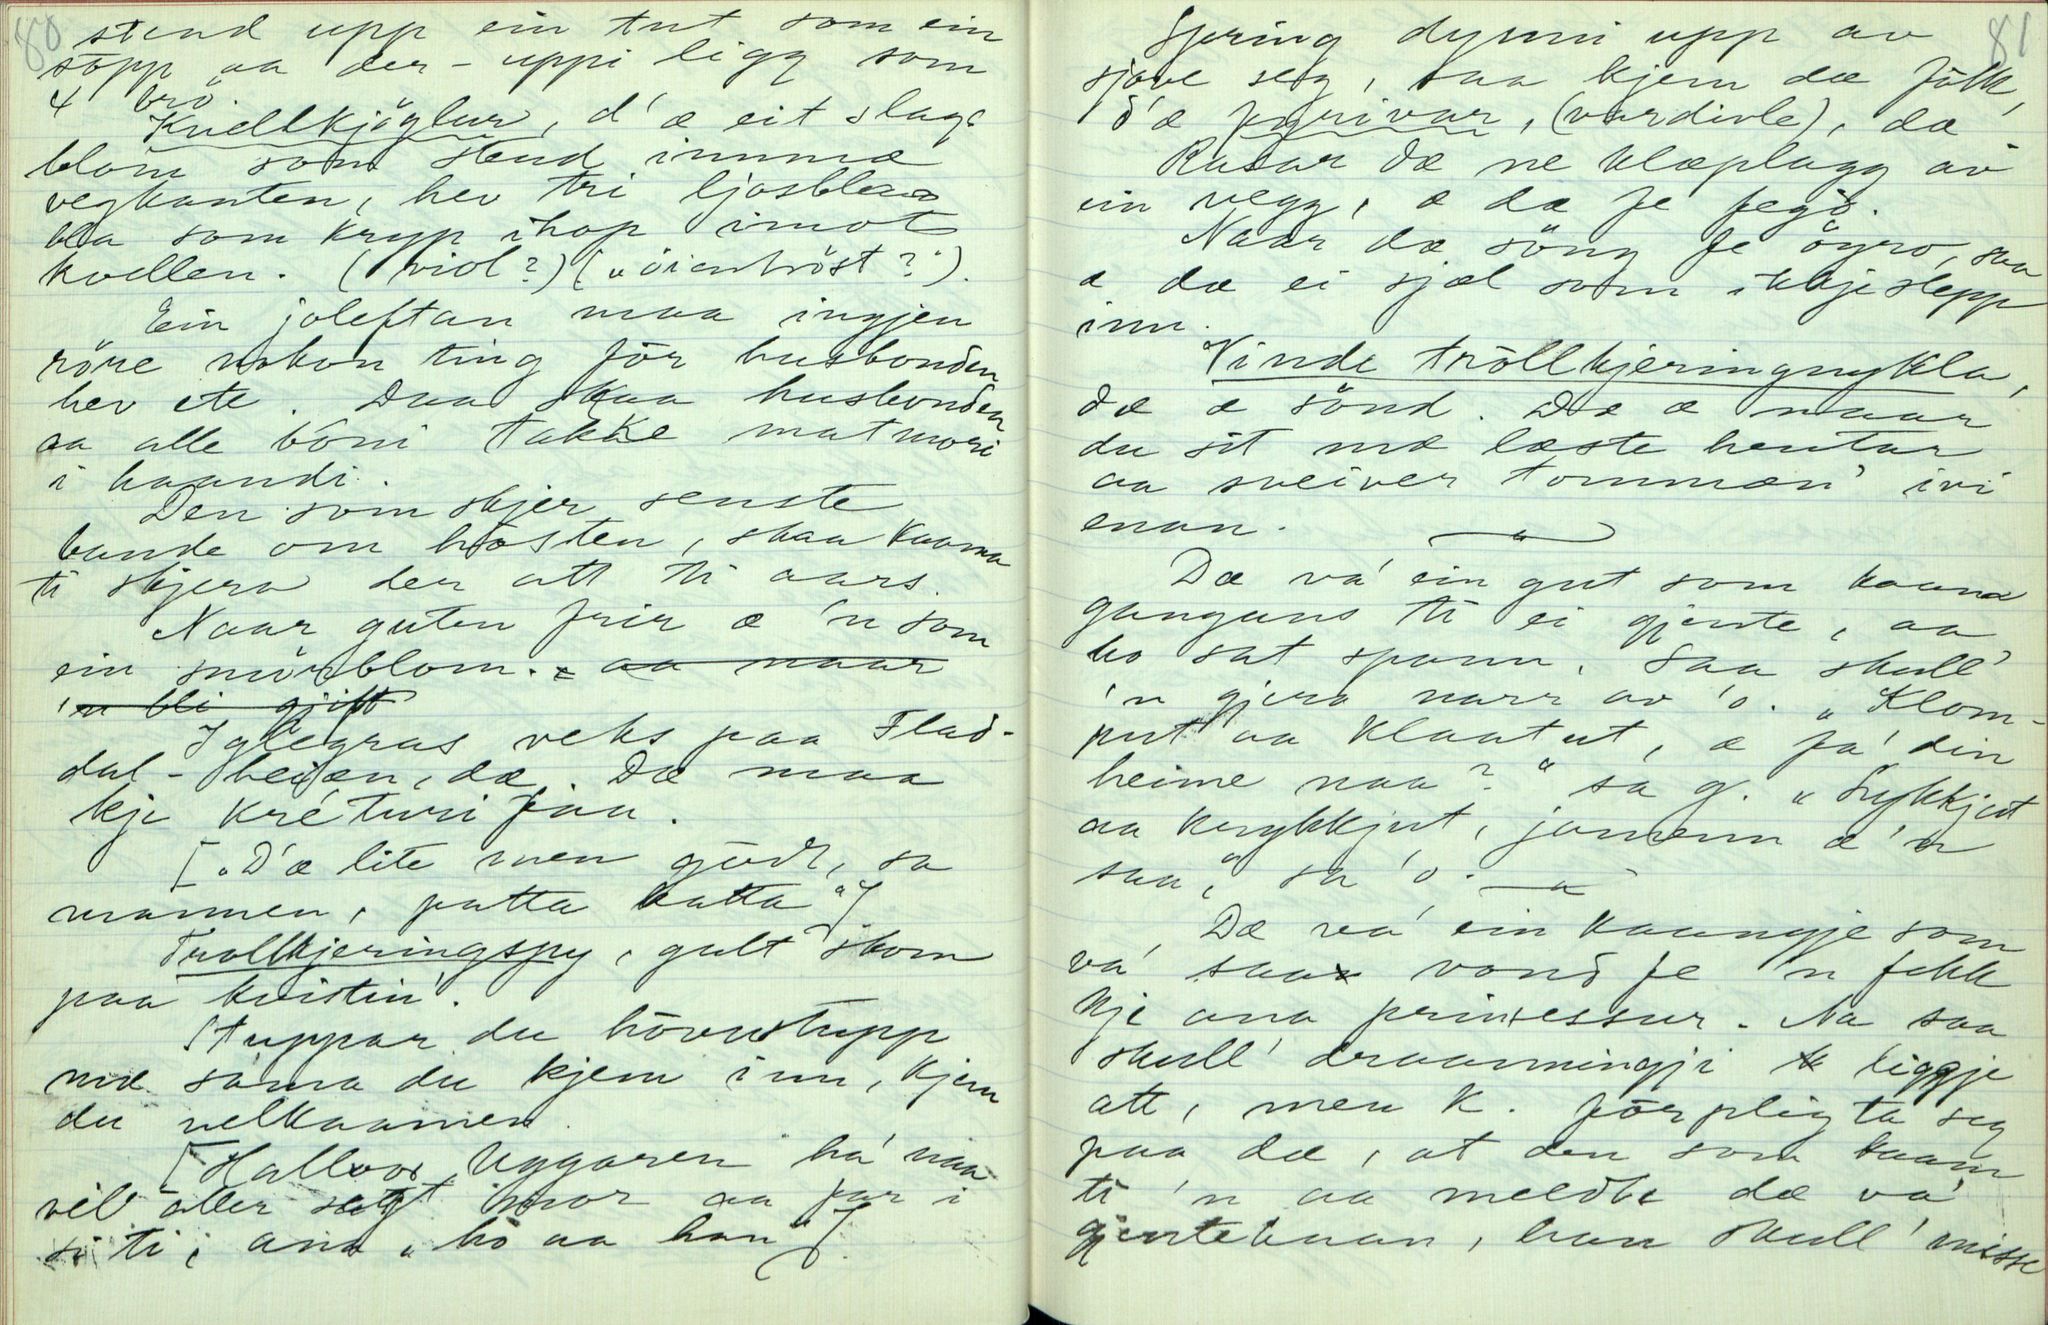 80
stend upp ein tut som ein
sopp aa der-uppi ligg som
4 brö.
Knellkjöglur, d'æ eit slags
blom som stend innmæ
vegkanten, hev tri ljosblaa
bla som kryp ihop imot
kvellen. (viol?) („öientröst?").
Ein joleftan maa ingjen
röre nokon ting för husbonden
hev ete. Daa skaa husbonden
aa alle böni takke matmori
i haandi.
Den som skjer senste
bande om hösten, skaa kaama
ti skjera der att ti aars.
Naar guten frir æ 'n som
ein smörblom. aa naar
'n bli gjift
Iglegras veks paa Flad-
dal-heiæn, dæ. Dæ maa
kje krétturi faa.
[„D'æ lite men godt, sa
mannen, patta katta"]
Trollkjeringspy, gult skom
paa kvistin'.
Stuppar du hövustupp
mæ sama du kjem inn, kjem
du velkaamen.
[Hallvor Uggaren ha' naa
vel aller sagt mor aa far i
si ti, ana „ho aa han"].
81
Spring dynni upp av
sjave seg, saa kjem dæ folk,
d'æ fyrivar, (vardivle), dæ
Rasar dæ ne klæplagg av
ein vegg, æ dæ fe feg̈d.
Naar dæ söng fe öyro, saa
æ dæ ei sjæl som ikkje slepp
inn.
Vinde tröllkjeringnykla,
dæ æ sönd. Dæ æ naar
du sit mæ læste hentar
aa sveiver tommæn' ivi
enan.
Dæ va' ein gut som kaam
gangans ti ei gjente, aa
ho sat spann. Saa skull'
'n gjera narr av 'o. „Klom-
put aa Klaatut, æ fa' din
heime naa?" sa g. „Lykkjut
aa krykkjut, jamenn æ'n
saa," sa 'o.
Dæ va' ein kaangje som
va' saa vond fe 'n fekk
kje ana prinsessur. Na saa
skull' draanningji liggje
att, men K. förpligta seg
paa dæ, at den som kaam
ti 'n aa meldte dæ va'
gjentebaan, han skull' misse